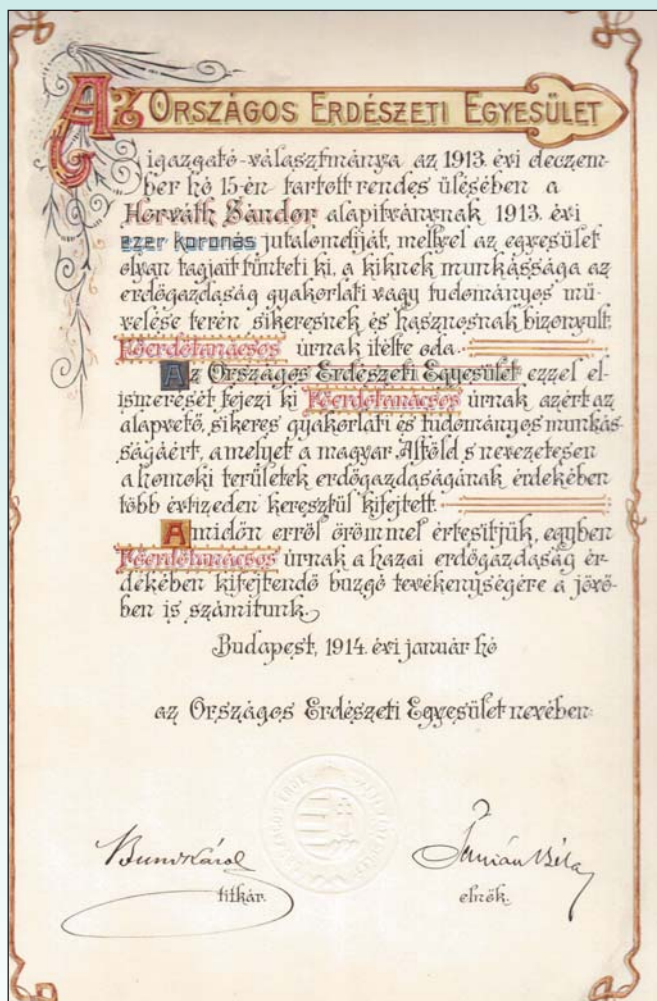 AZ ORSZÁGOS ERDÉSZETI EGYESÜLET
igazgató-választmánya az 1913. évi deczem-
ber hó 15-én tartott rendes ülésében a
Horváth Sándor alapitványnak 1913. évi
ezer koronás jutalomdiját, mellyel az egyesület
olyan tagjait tünteti ki, a kiknek munkássága az
erdőgazdaság gyakorlati vagy tudományos mü-
velése terén sikeresnek és hasznosnak bizonyult,
Főerdőtanácsos úrnak itélte oda.
Az Országos Erdészeti Egyesület ezzel el-
ismerését fejezi ki Főerdőtanácsos úrnak azért az
alapvető, sikeres gyakorlati és tudományos munkás-
ságáért, amelyet a magyar Alföld s nevezetesen
a homoki területek erdőgazdaságának érdekében
több évtizeden keresztül kifejtett.
Amidőn erről örömmel értesitjük, egyben
Főerdőtanácsos úrnak a hazai erdőgazdaság ér-
dekében kifejtendő buzgó tevékenységére a jövő-
ben is számitunk.
Budapest, 1914. évi január hó
az Országos Erdészeti Egyesület nevében:
Bund Károly
titkár.
Béla
elnök.